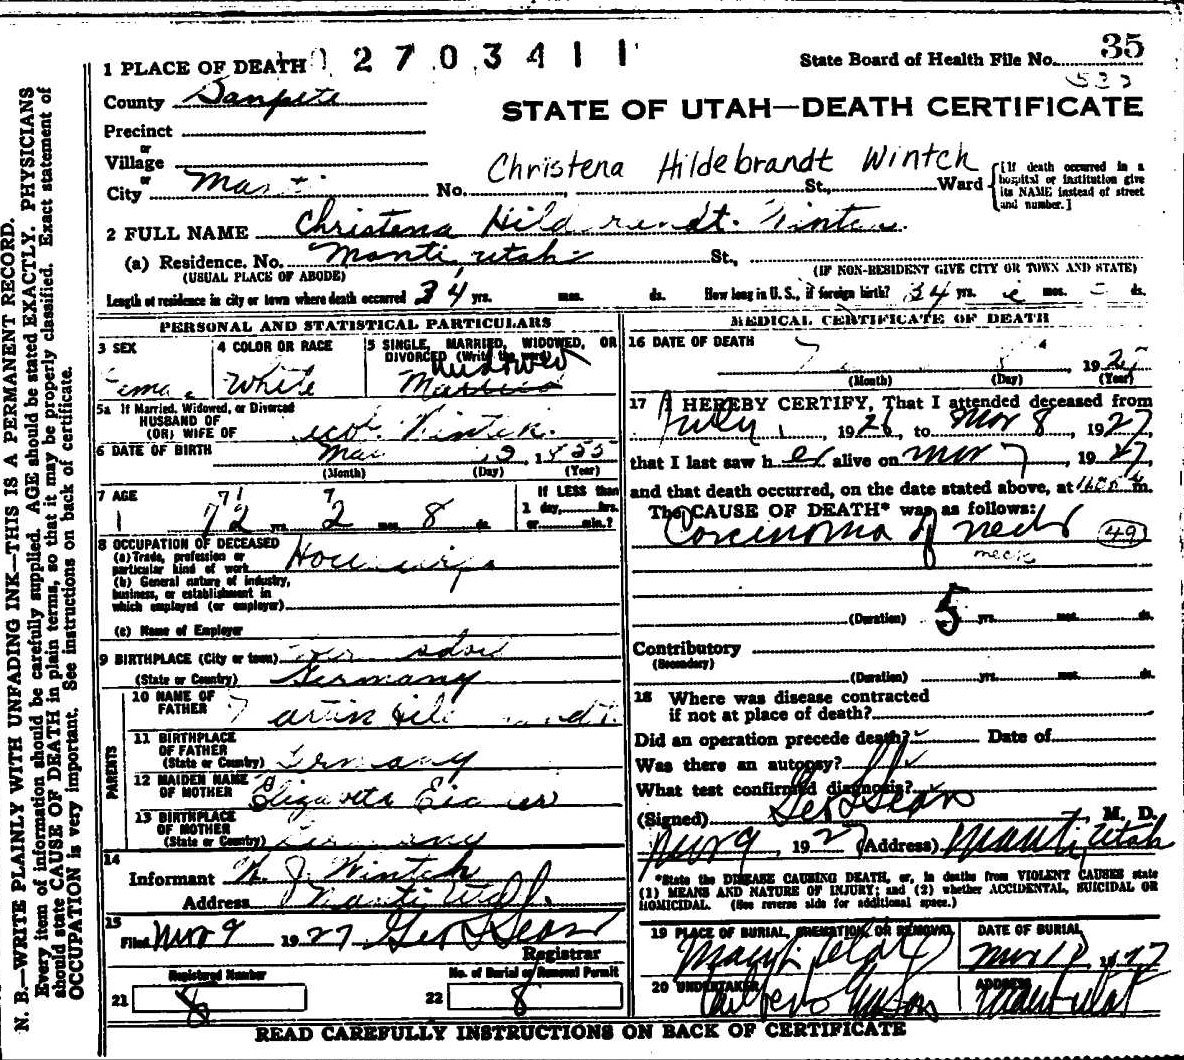 35
State Board of Health File No.
1 PLACE OF DEATH 2 7 0 3 4 1 1
County Sanpete
STATE OF UTAH—DEATH CERTIFICATE
Precinct
or
Village
or
Christena Hildebrandt Wintch
City Manti No. St., Ward
[If death occurred in a hospital or institution give its NAME instead of street and number.]
2 FULL NAME Christena
(a) Residence. No. Manti, Utah St.,
(USUAL PLACE OF ABODE) (IF NON-RESIDENT GIVE CITY OR TOWN AND STATE)
Length of residence in city or town where death occurred 34 yrs. mos. ds. How long in U. S., if foreign birth? 34 yrs. mos. ds.
PERSONAL AND STATISTICAL PARTICULARS
3 SEX
4 COLOR OR RACE
White
5 SINGLE, MARRIED, WIDOWED, OR DIVORCED (Write the word)
Widowed
Married
5a If Married, Widowed, or Divorced
HUSBAND OF
(OR) WIFE OF
6 DATE OF BIRTH
(Month) (Day) (Year)
7 AGE
71
7
72 yrs. 2 mos. 8 ds.
If LESS than
1 day, hrs.
or min.?
8 OCCUPATION OF DECEASED
(a) Trade, profession or
particular kind of work Housewife
(b) General nature of industry,
business, or establishment in
which employed (or employer)
(c) Name of Employer
9 BIRTHPLACE (City or town)
(State or Country) Germany
PARENTS
10 NAME OF
FATHER
11 BIRTHPLACE
OF FATHER
(State or Country) Germany
12 MAIDEN NAME
OF MOTHER
13 BIRTHPLACE
OF MOTHER
(State or Country) Germany
14
Informant Wintch
Address Manti Utah.
15
Filed Mar 9 1927
Registrar
Registered Number
21 8
No. of Burial or Removal Permit
22 8
MEDICAL CERTIFICATE OF DEATH
16 DATE OF DEATH
(Month) (Day) (Year)
17 I HEREBY CERTIFY, That I attended deceased from
July 1, 1926, to Mar 8, 1927,
that I last saw her alive on Mar 7, 1927,
and that death occurred, on the date stated above, at m.
The CAUSE OF DEATH* was as follows:
Carcinoma of neck 49
neck
(Duration) 5 yrs. mos. ds.
Contributory
(Secondary)
(Duration) yrs. mos. ds.
18 Where was disease contracted
if not at place of death?
Did an operation precede death? Date of
Was there an autopsy?
What test confirmed diagnosis?
(Signed) M. D.
Mar 9, 1927 (Address) Manti, Utah
*State the DISEASE CAUSING DEATH, or, in deaths from VIOLENT CAUSES state
(1) MEANS AND NATURE OF INJURY; and (2) whether ACCIDENTAL, SUICIDAL OR
HOMICIDAL. (See reverse side for additional space.)
19 PLACE OF BURIAL, CREMATION, OR REMOVAL
DATE OF BURIAL
20 UNDERTAKER
ADDRESS
READ CAREFULLY INSTRUCTIONS ON BACK OF CERTIFICATE
N. B.—WRITE PLAINLY WITH UNFADING INK—THIS IS A PERMANENT RECORD.
Every item of information should be carefully supplied. AGE should be stated EXACTLY. PHYSICIANS
should state CAUSE OF DEATH in plain terms, so that it may be properly classified. Exact statement of
OCCUPATION is very important. See instructions on back of certificate.